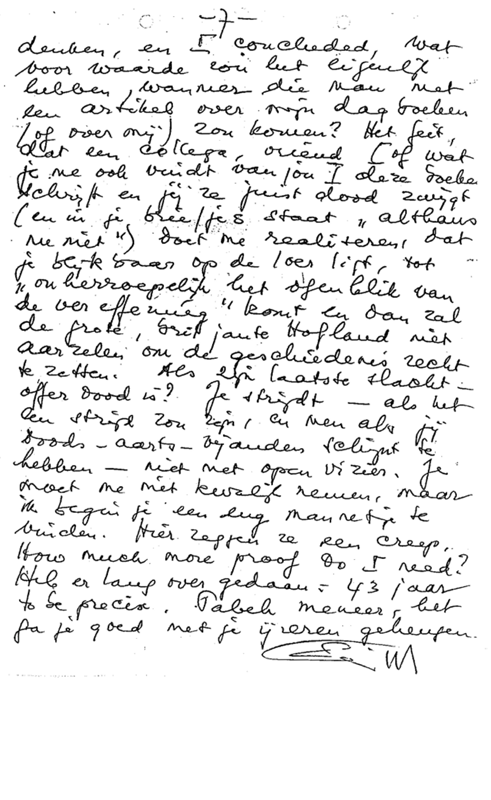 -7-
denken, en I concluded, wat
voor waarde zou het eigenlijk
hebben, wanneer die man met
een artikel over mijn dagboeken
(of over mij) zou komen? Het feit,
dat een collega, vriend (of wat
je me ook vindt van jou I deze boeken
schrijft en jij ze juist dood zwijgt
(en in je briefjes staat "althans
nu niet") doet me realiseren, dat
je blijkbaar op de loer ligt, tot
"onherroepelijk het ogenblik van
de vereffening" komt en dan zal
de grote, briljante Hofland niet
aarzelen om de geschiedenis recht
te zetten. Als zijn laatste slacht-
offer dood is? Je strijdt - als het
een strijd zou zijn, en men als jij
doods-aarts-vijanden schijnt te
hebben - niet met open vizier. Je
moet me niet kwalijk nemen, maar
ik begin je een eng mannetje te
vinden. Hier zeggen ze een creep.
How much more proof do I need?
Heb er lang over gedaan: 43 jaar
to be precise. Tabeh meneer, het
ga je goed met je ijzeren geheugen.